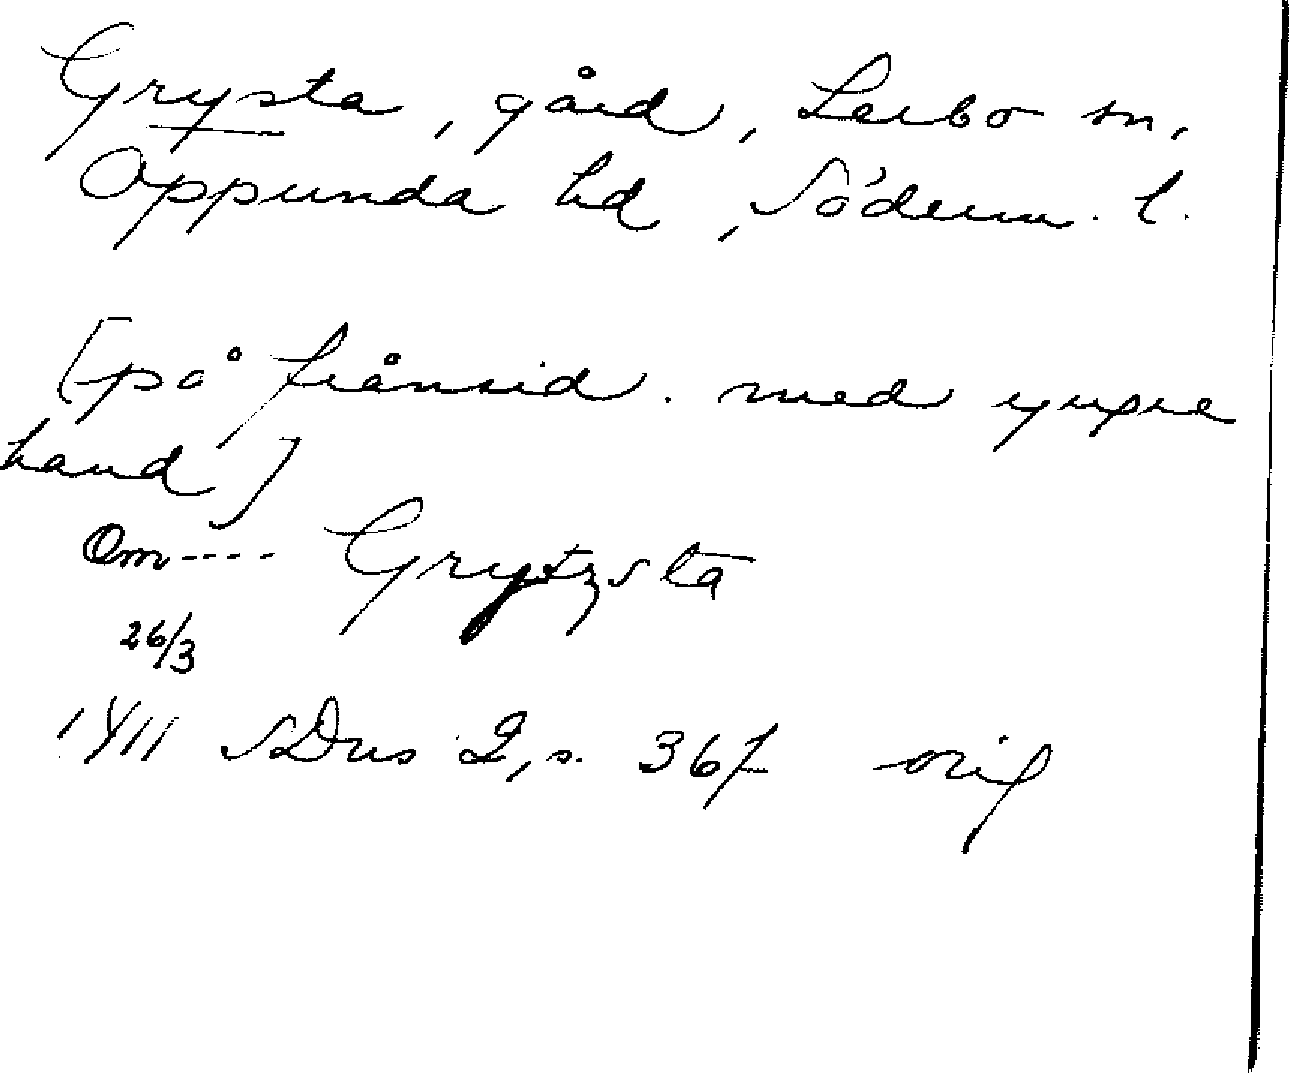 Grysta, gård, Lerbo sn,
Oppunda hd, Söderm. l.
[på frånsid. med yngre
hand]
Om---- Grytzsta
26/3
1411 SDns 2, s. 367 orig